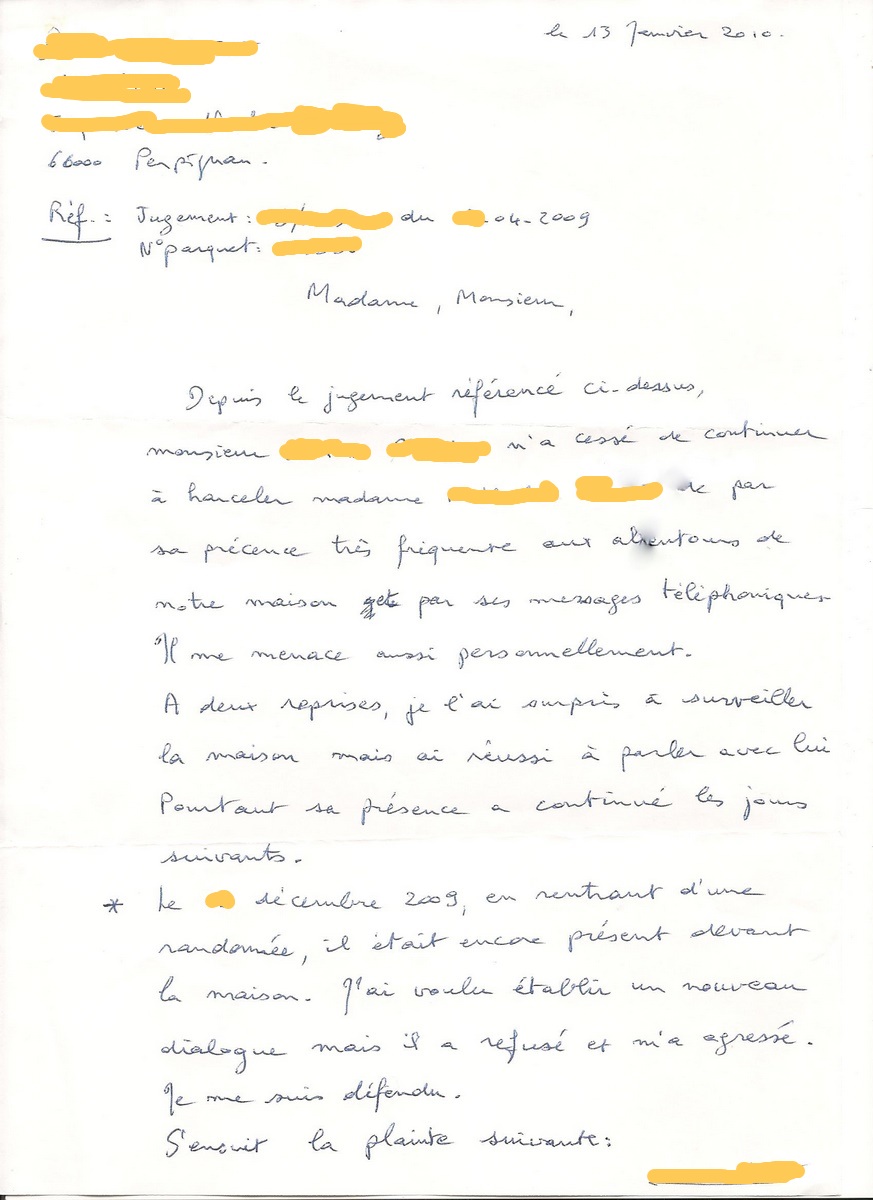 le 13 Janvier 2010.
66000 Perpignan.
Réf.: Jugement: du .04-2009
N° parquet:
Madame, Monsieur,
Depuis le jugement référencé ci-dessus,
monsieur n'a cessé de continuer
à harceler madame par
sa précence très fréquente aux alentours de
notre maison et par ses messages téléphoniques
Il me menace aussi personnellement.
A deux reprises, je l'ai surpris à surveiller
la maison mais ai réussi à parler avec lui
Pourtant sa présence a continué les jours
suivants.
* Le décembre 2009, en rentrant d'une
randonnée, il était encore présent devant
la maison. J'ai voulu établir un nouveau
dialogue mais il a refusé et m'a agressé.
Je me suis défendu.
S'ensuit la plainte suivante: